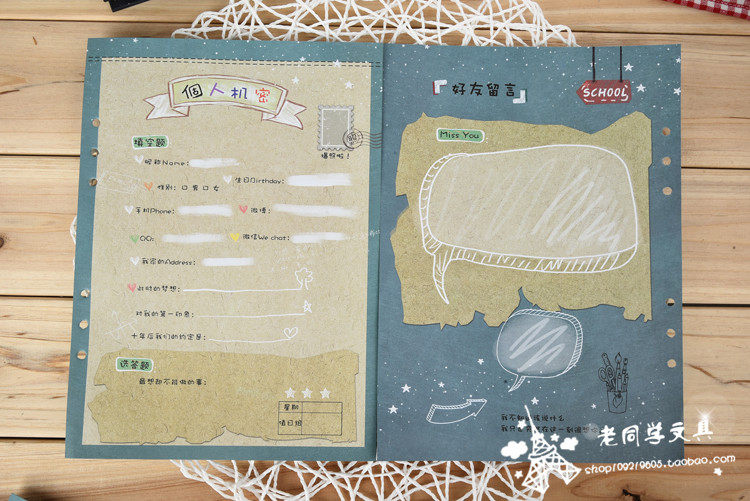 個人机密
填空题
爆照啦！
昵称Name：
性别：□男□女
生日Birthday：
手机Phone：
微博：
QQ：
微信We chat：
我家的Address：
此时的梦想：
对我的第一印象：
十年后我们的约定是：
选答题
最想却不能做的事：
星期
值日组
好友留言
SCHOOL
Miss You
老同学文具
shop109219605.taobao.com